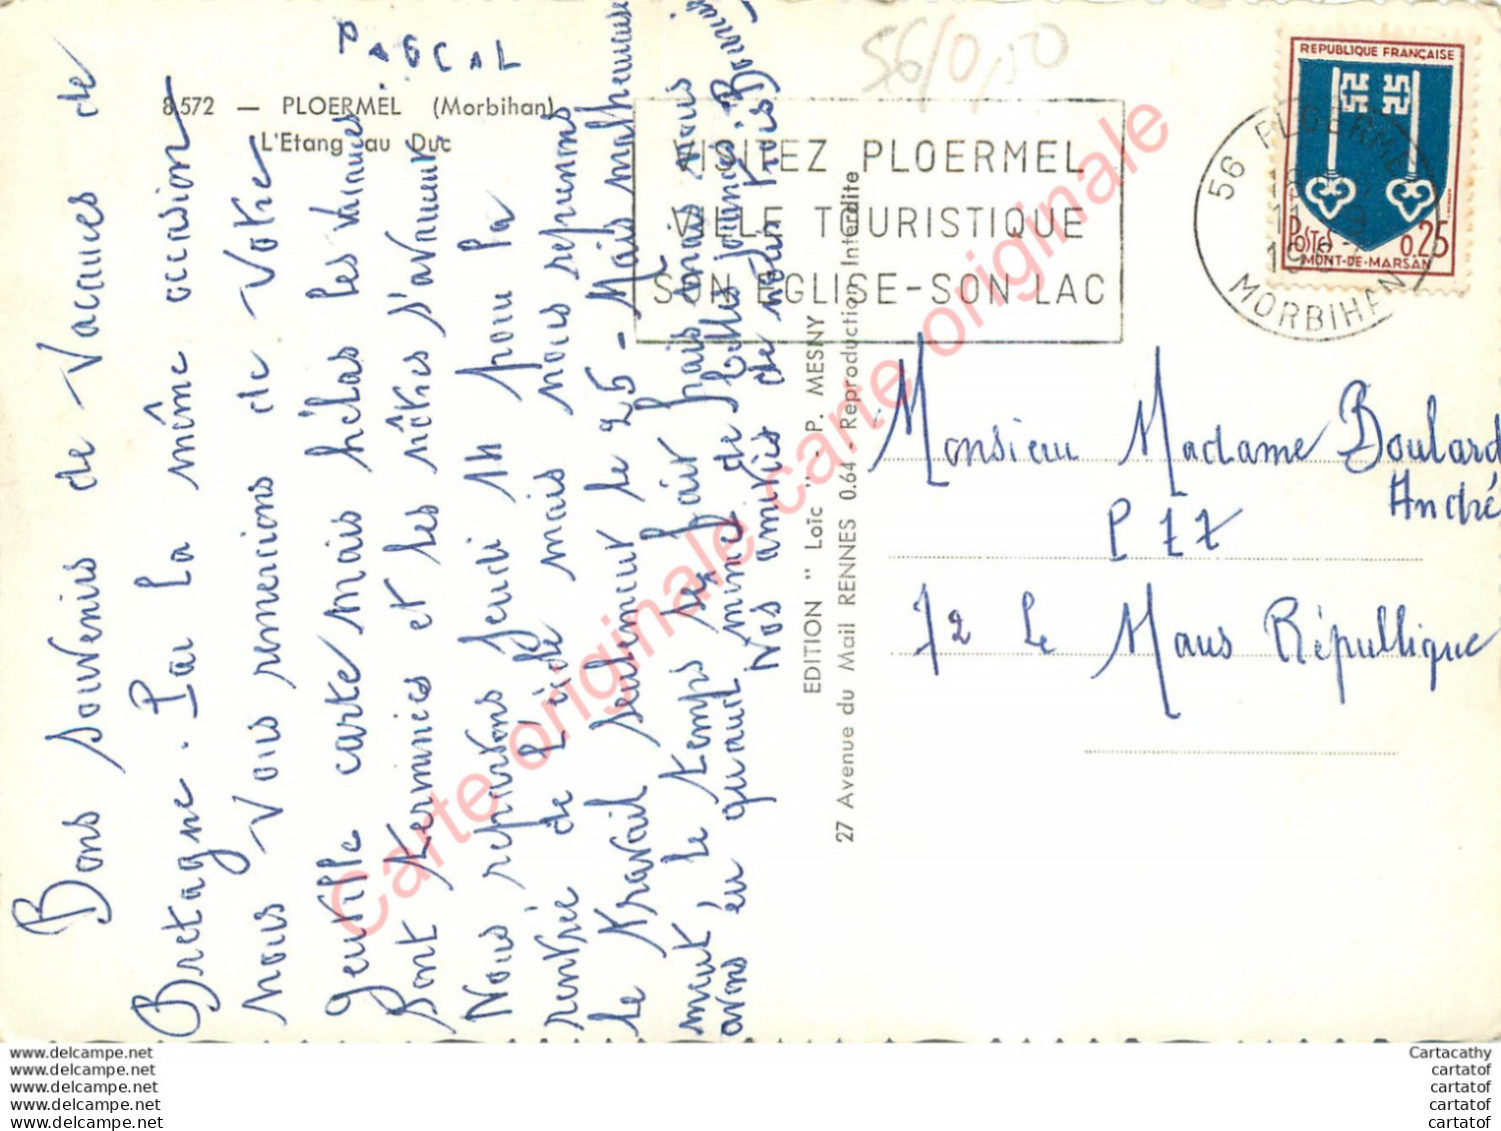 PASCAL
8.572 — PLOERMEL (Morbihan)
L'Etang au Duc
56/0,50
VISITEZ PLOERMEL
VILLE TOURISTIQUE
SON EGLISE-SON LAC
REPUBLIQUE FRANÇAISE
POSTES 0.25
MONT-DE-MARSAN
56 PLOERMEL
MORBIHAN
Bons souvenirs de Vacances de
Bretagne. Par la même occasion
nous vous remercions de Votre
gentille carte mais hélas les vacances
sont terminées et les nôtres s'avancent
Nous repartons jeudi 14 pour la
rentrée de l'école mais nous reprenons
le travail seulement le 25 - Mais malheureuse
ment, le temps est fair frais mais nous
avons eu quand même de belles journées. Bonne
Nos amitiés de nous trois
EDITION " Loïc " - P. MESNY
27 Avenue du Mail RENNES 0.64 - Reproduction Interdite
Monsieur Madame Boulard
André
PTT
72 Le Mans République
Carte originale Carte originale Carte originale
www.delcampe.net
www.delcampe.net
www.delcampe.net
www.delcampe.net
www.delcampe.net
Cartacathy
cartatof
cartatof
cartatof
cartatof